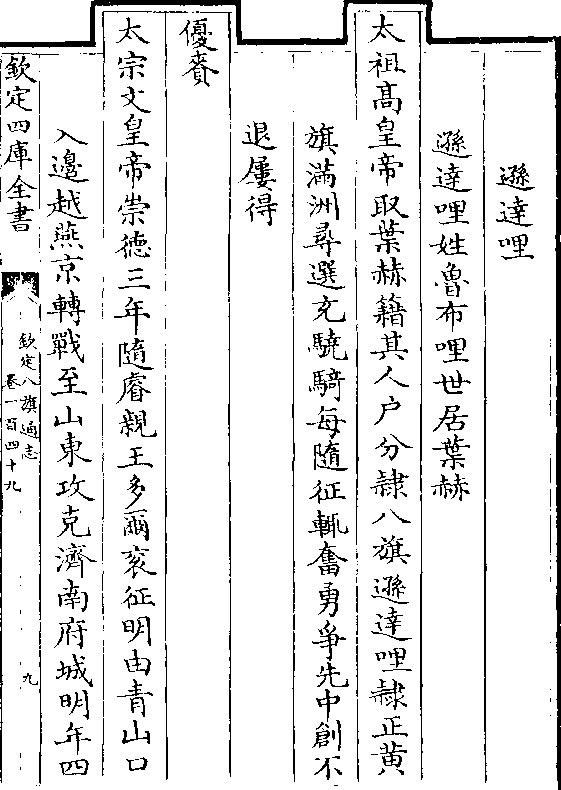 遜達哩
遜達哩姓魯布哩世居葉赫
太祖高皇帝取葉赫籍其人户分隸八旗遜達哩隸正黄
旗滿洲尋選充驍騎每隨征輒奮勇爭先中創不
退屢得
優賚
太宗文皇帝崇徳三年隨睿親王多爾衮征明由青山口
入邊越燕京轉戰至山東攻克濟南府城明年四
欽定四庫全書
欽定八旗通志
卷一百四十九
九